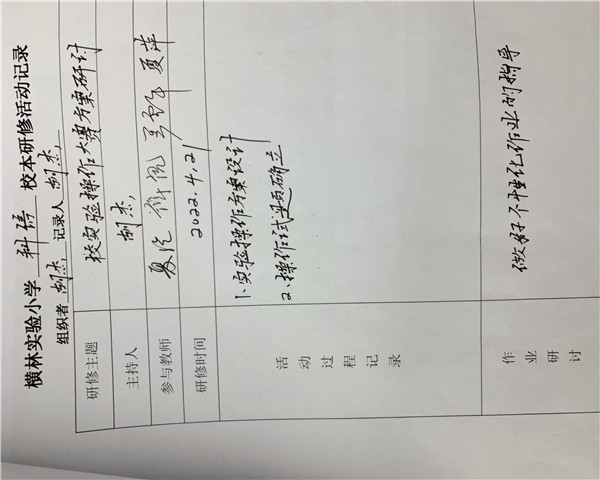 横林实验小学 科信 校本研修活动记录
组织者 胡杰 记录人 胡杰
研修主题 校实验操作大赛方案研讨
主持人 胡杰
参与教师 夏萍
研修时间 2022.4.21
活动过程记录
1.实验操作方案设计
2.操作试题确立
作业研讨
做好个性化作业的指导